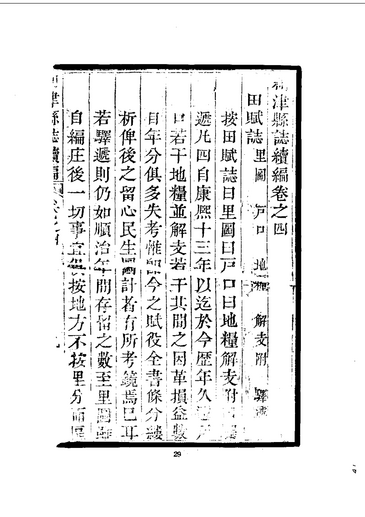 津縣誌續編卷之四
田賦誌 里圖 戶口 地糧 解支附 驛遞
按田賦誌曰里圖曰戶口曰地糧解支附曰驛
遞凡四自康熙十三年以迄於今歷年久遠戶
口若干地糧並解支若干其間之因革損益數
百年分俱多失考惟即今之賦役全書條分縷
析俾後之留心民生國計者有所考鏡焉已耳
若驛遞則仍如順治年間存留之數至里圖
自編庄後一切事宜按地方不按里分而
津縣誌續編
29